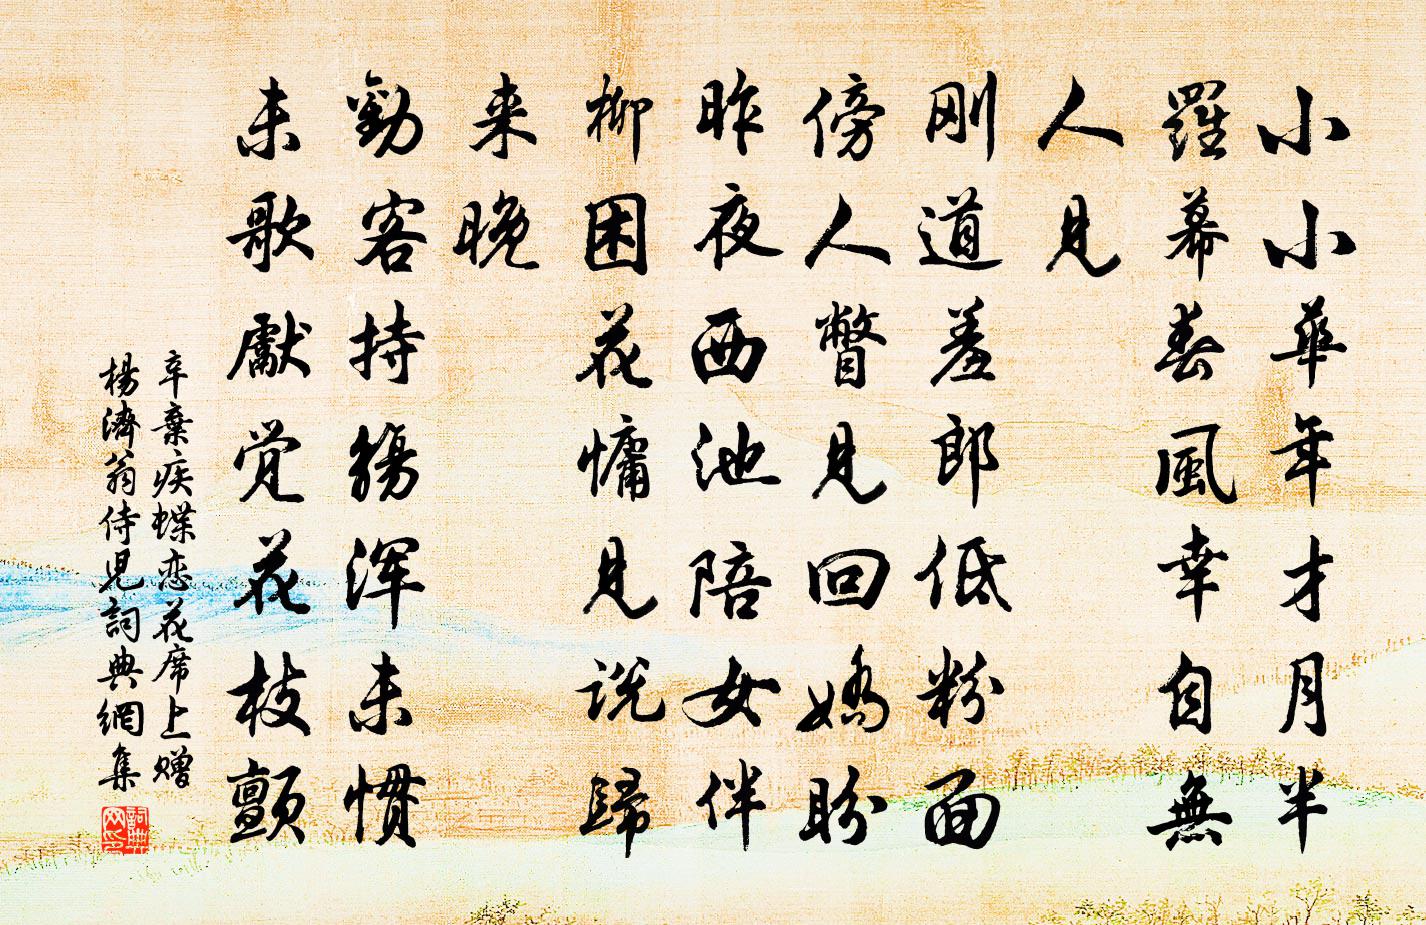 小小華年才月半
羅幕春風幸自無
人見
剛道羞郎低粉面
傍人瞥見回嬌盼
昨夜西池陪女伴
柳困花慵見说歸
来晚
勸客持觴浑未慣
未歌獻觉花枝顫
辛棄疾蝶恋花席上赠
楊濟翁侍児詞典網集